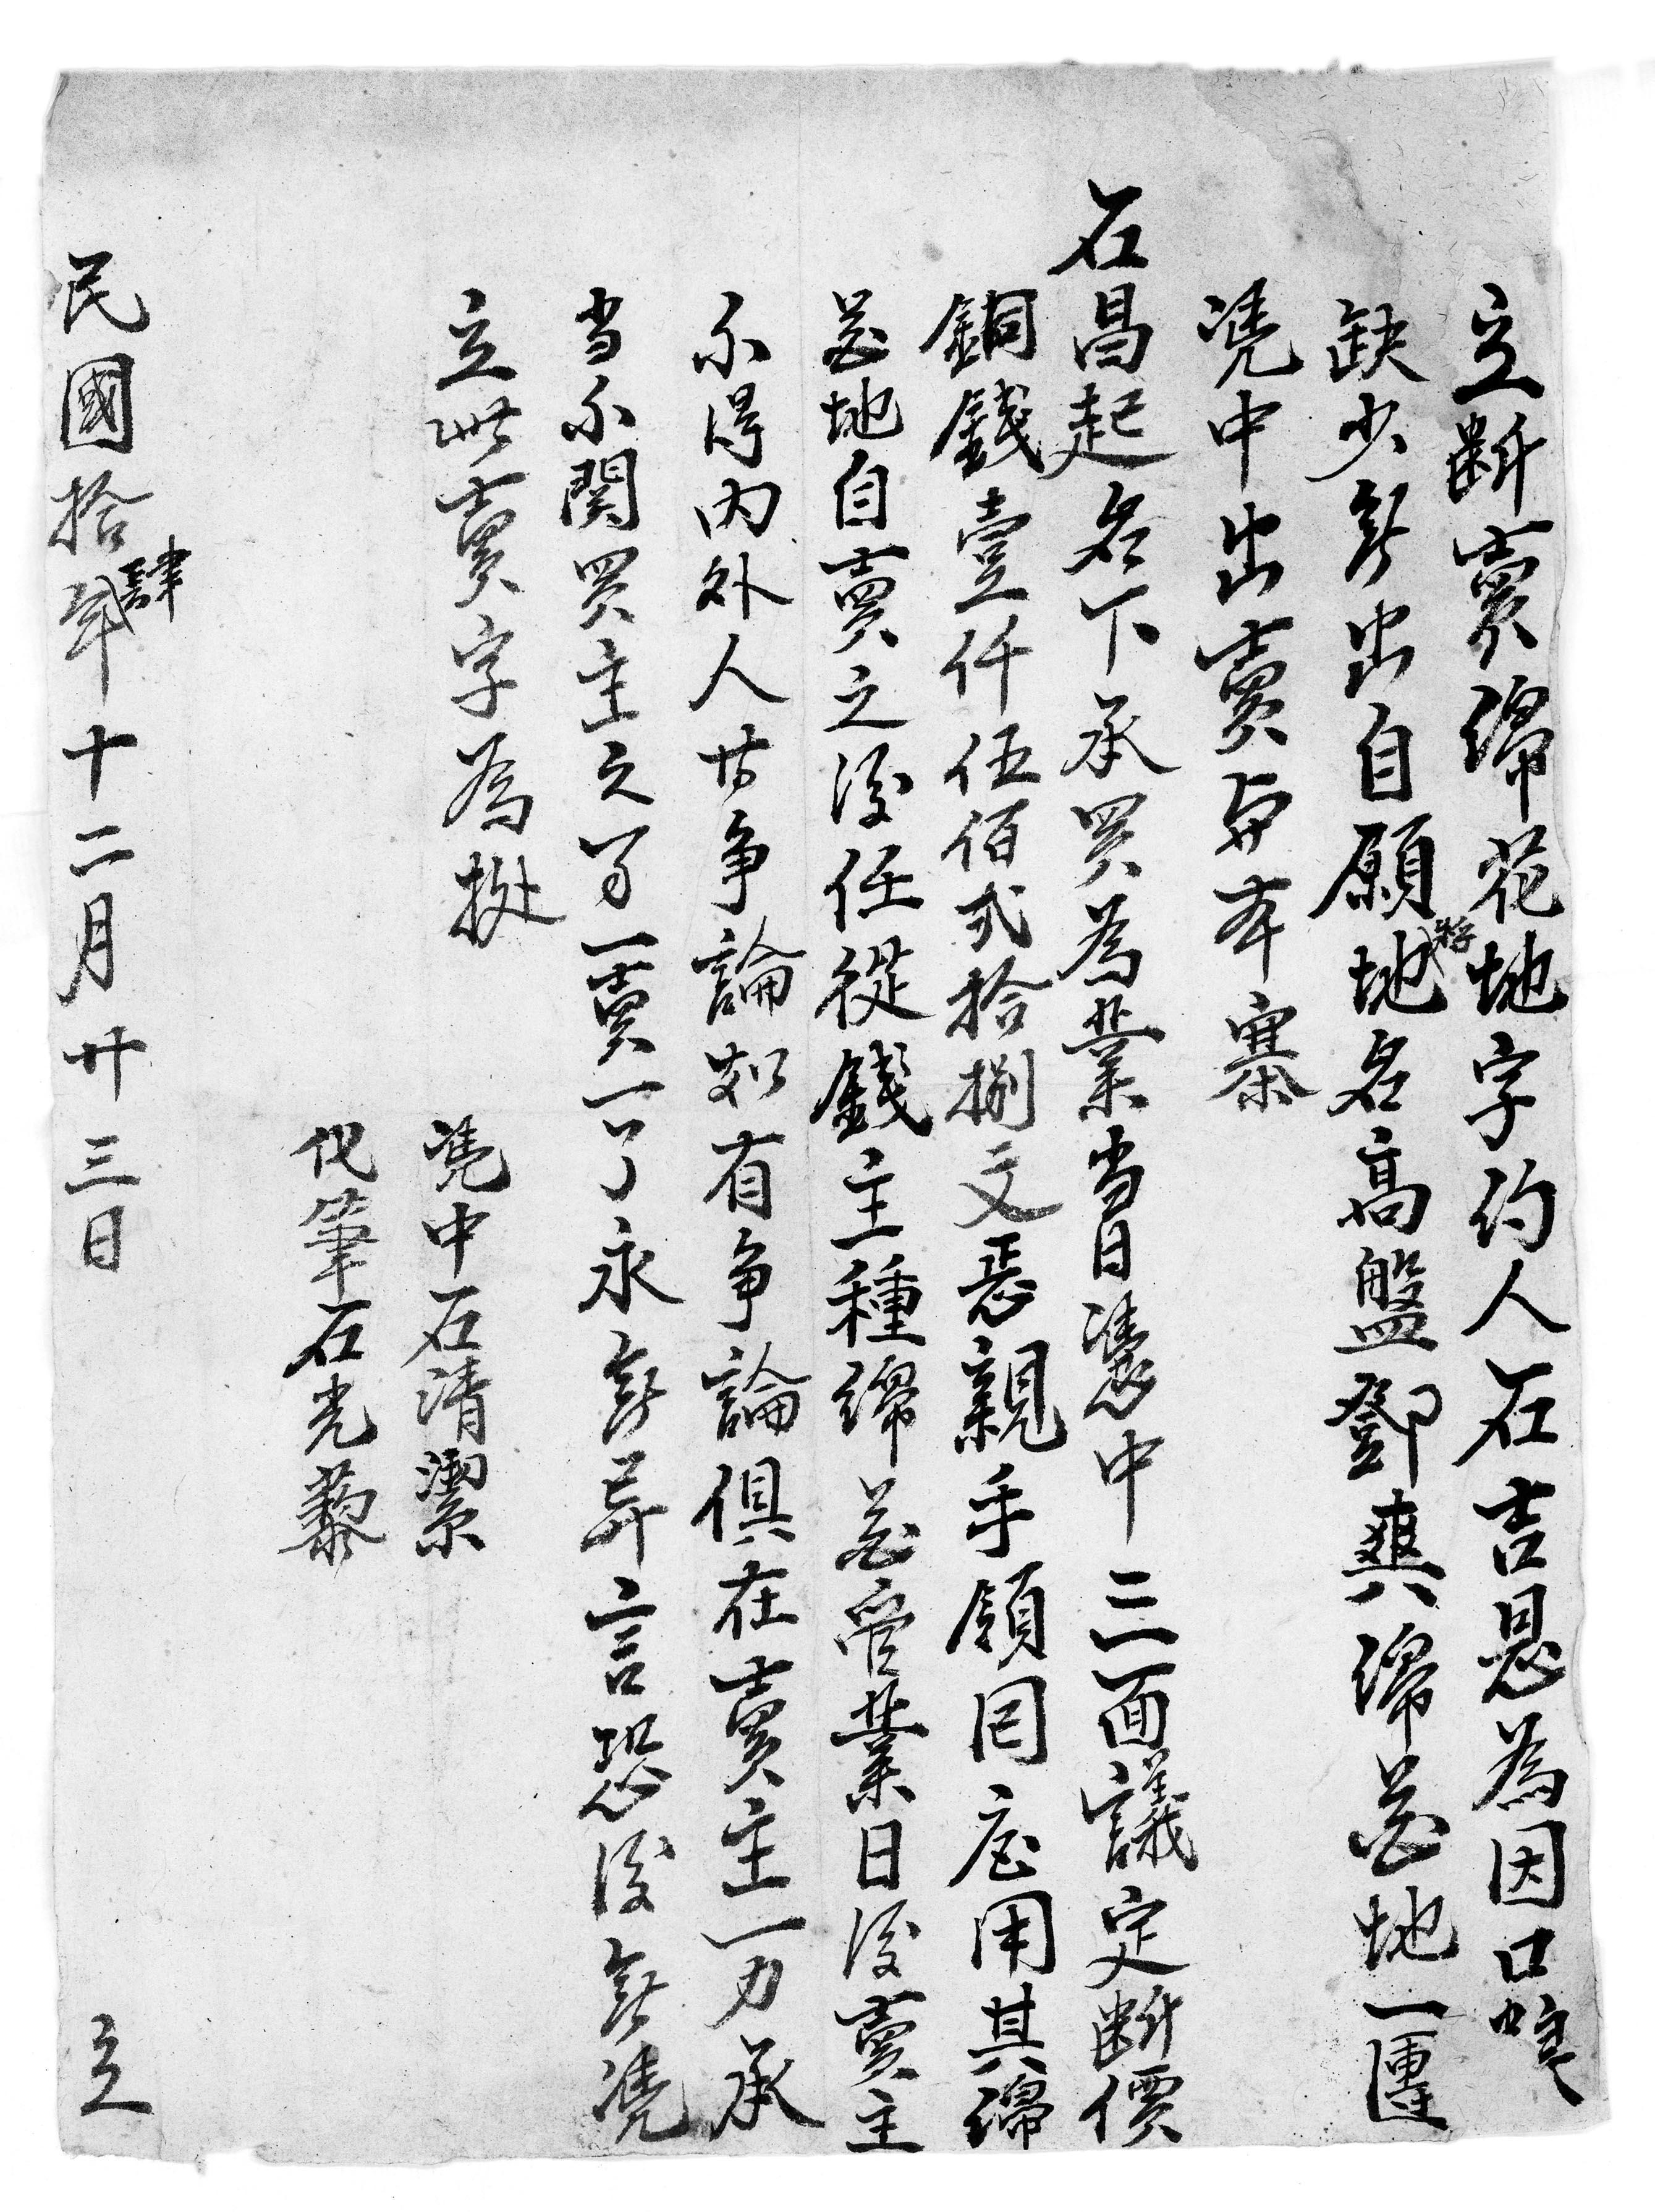 立斷賣綿花地字約人石吉恩為因口嗼
缺少無出自願將地名高盤鄧爽綿花地一團
凴中出賣與本寨
石昌起名下承買為業当日凴中三面議定斷價
銅錢壹仟伍佰弍拾捌文恶親手領囘応用其綿
花地自賣之後任從錢主種綿花管業日後賣主
不得内外人等争論如有争論俱在賣主一力承
当不関買主之事一賣一了永無異言恐後無凴
立此賣字為挩
凴中石清潔
代筆石光藜
民國拾肆年十二月廿三日立